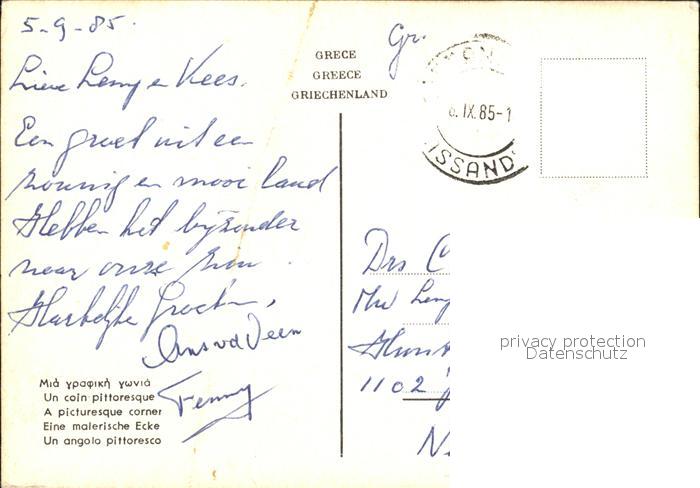 5-9-85.
Lieve Lenny en Kees.
Een groet uit een
zonnig en mooi land
Hebben het byzonder
naar onze zin.
Hartelyke Groeten,
Ans vd Veen
Fenny
Μιά γραφική γωνιά
Un coin pittoresque
A picturesque corner
Eine malerische Ecke
Un angolo pittoresco
GRECE
GREECE
GRIECHENLAND
Gr.
6. IX. 85-1
ISSAND
Drs C
1102
N.
privacy protection
Datenschutz